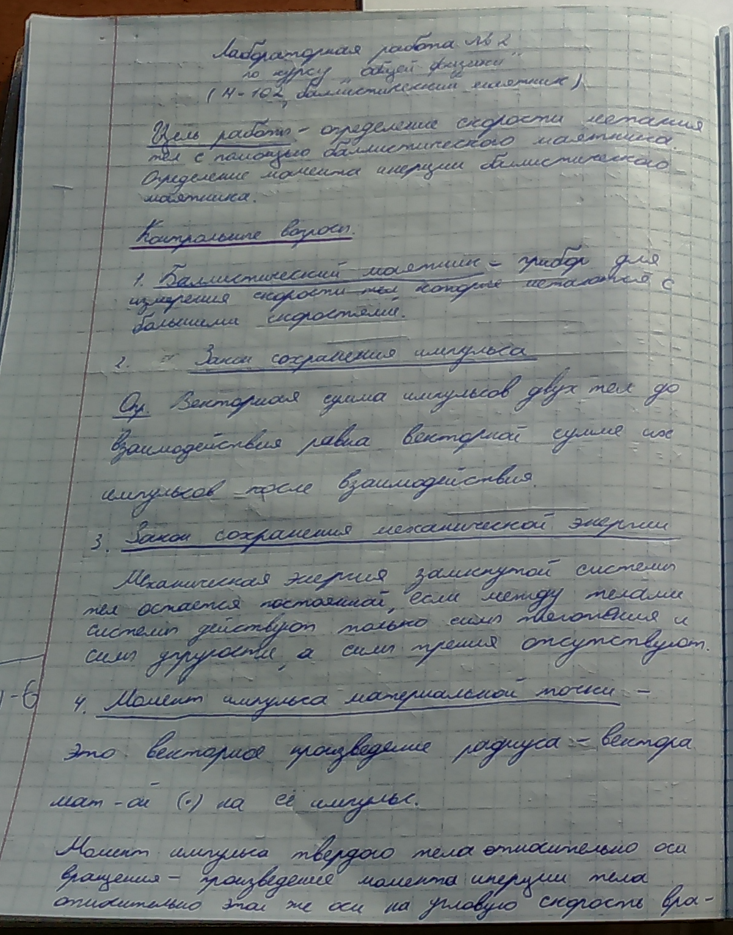 Лабораторная работа № 2
по курсу „общей физики"
(М-102, баллистический маятник)
Цель работы - определение скорости метания
тел с помощью баллистического маятника.
Определение момента инерции баллистического
маятника.
Контрольные вопросы.
1. Баллистический маятник - прибор для
измерения скорости тел которые метаются с
большими скоростями.
2. Закон сохранения импульса
Опр. Векторная сумма импульсов двух тел до
взаимодействия равна векторной сумме их
импульсов после взаимодействия.
3. Закон сохранения механической энергии
Механическая энергия замкнутой системы
тел остается постоянной, если между телами
системы действуют только силы тяготения и
силы упругости, а силы трения отсутствуют.
4. Момент импульса материальной точки -
это векторное произведение радиуса - вектора
мат-ой (•) на её импульс.
Момент импульса твердого тела относительно оси
вращения - произведение момента инерции тела
относительно этой же оси на угловую скорость вра-